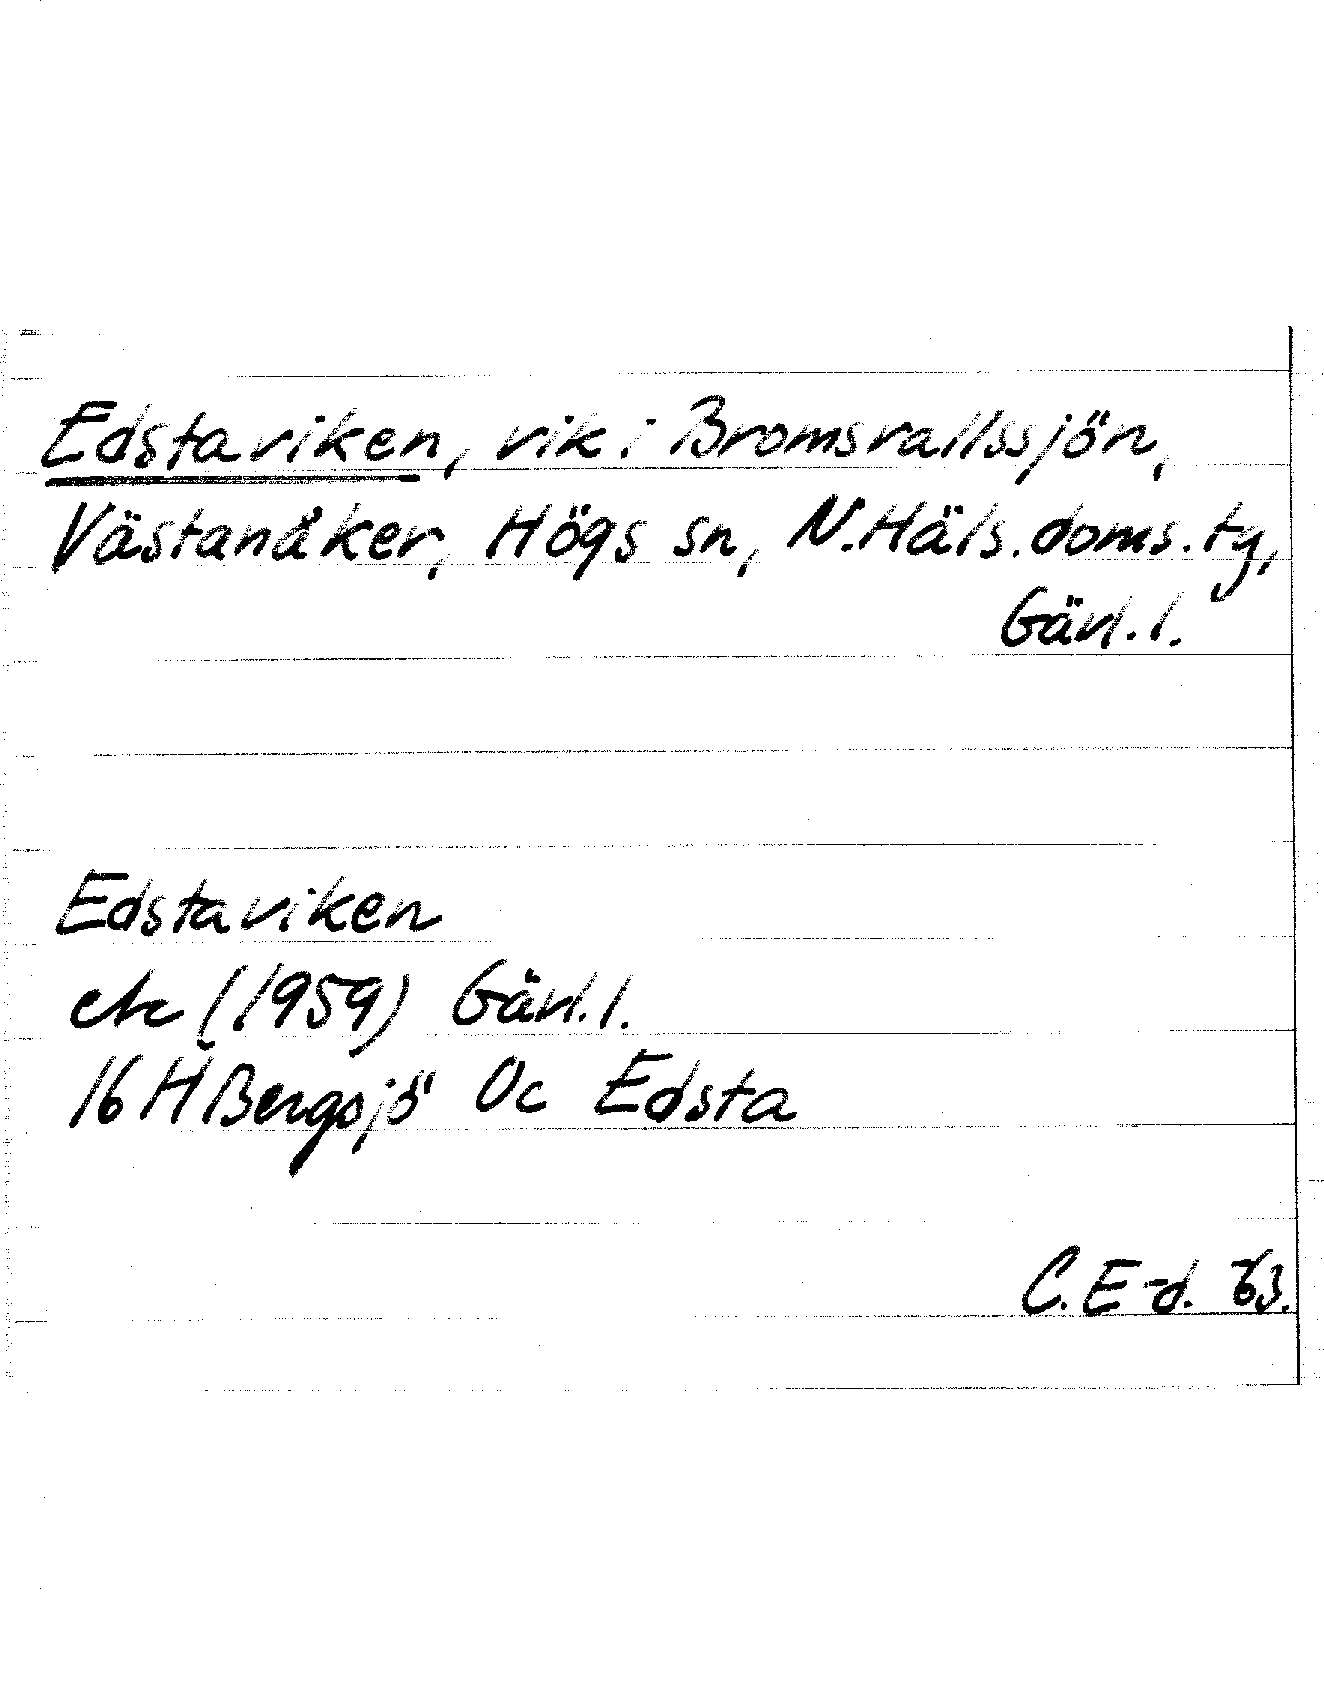 Edstaviken, vik i Bromsvallssjön,
Västanåker, Högs sn, N.Häls.doms.ty,
Gävl.l.
Edstaviken
ek (1959) Gävl.l.
16 H Bergsjö 0c Edsta
C.E-d. 63.